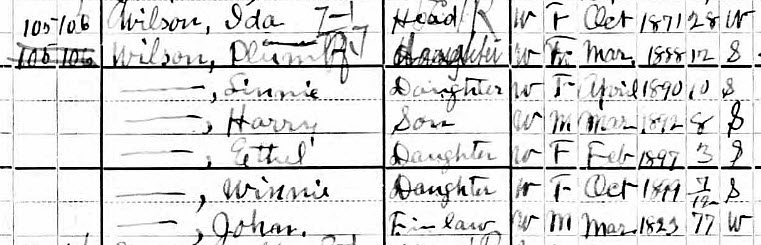 105 106 Wilson, Ida 7-1 Head R W F Oct 1871 28 W
105 106 Wilson, Plum Daughter W F Mar 1888 12 S
——, Linnie Daughter W F April 1890 10 S
——, Harry Son W M Mar 1892 8 S
——, Ethel Daughter W F Feb 1897 3 S
——, Winnie Daughter W F Oct 1899 7/12 S
——, John F in law W M Mar 1823 77 W